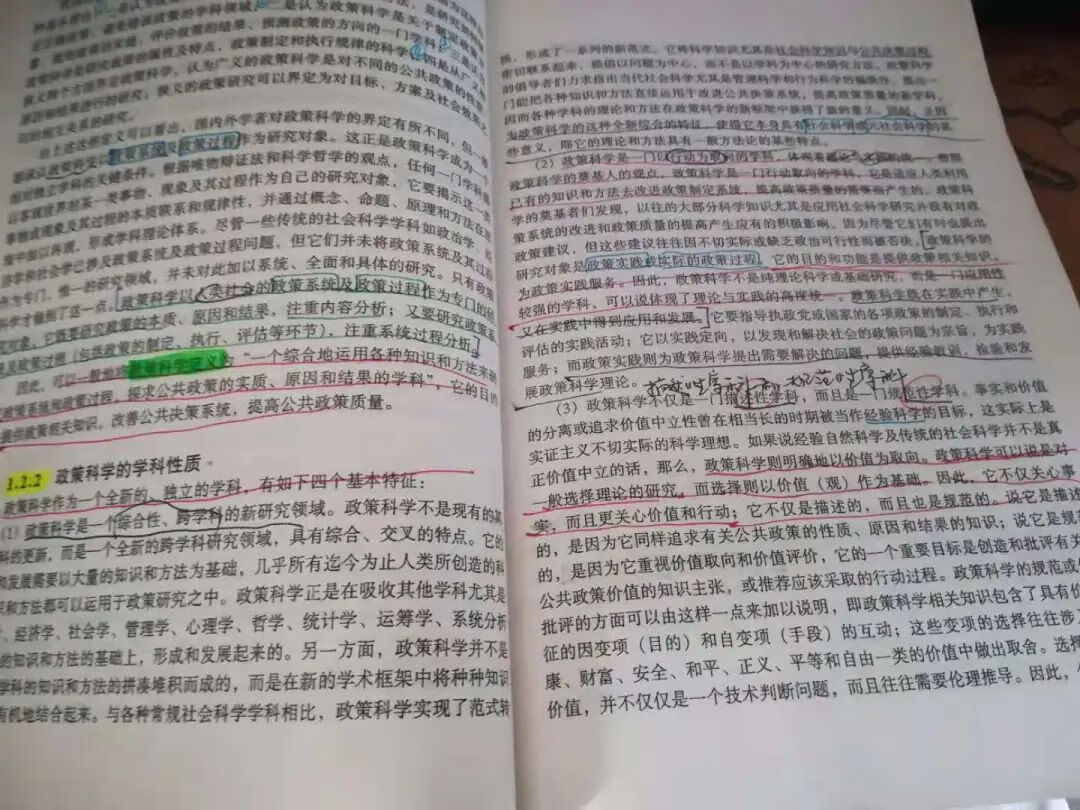 是认为政策科学是关于制定政策
的一门学科
政策制定和执行规律的科学
认为广义的政策科学是对不同的公共政策的性质、
狭义的政策研究可以界定为对目标、方案及社会效果之
间的相互关系的研究。
由上述这些定义可以看出,国内外学者对政策科学的界定有所不同,但一般
都承认政策科学以政策系统及政策过程作为研究对象。这正是政策科学成为一个
相对独立学科的关键条件。根据唯物辩证法和科学哲学的观点,任何一门学科都
以客观世界的某一类事物、现象及其过程作为自己的研究对象,它要揭示这一类
事物或现象及其过程的本质联系和规律性,并通过概念、命题、原理和方法在思
维中加以再现,形成学科理论体系。尽管一些传统的社会科学学科如政治学、经
济学和社会学已涉及政策系统及政策过程问题,但它们并未将政策系统及其过程
作为专门、惟一的研究领域,并未对此加以系统、全面和具体的研究。只有政策
科学才做到了这一点。政策科学以人类社会的政策系统及政策过程作为专门的研
究对象,它既要研究政策的本质、原因和结果,注重内容分析;又要研究政策系
统及政策过程(包括政策的制定、执行、评估等环节),注重系统过程分析。
因此,可以一般地将政策科学定义为“一个综合地运用各种知识和方法来研
究政策系统和政策过程,探求公共政策的实质、原因和结果的学科”,它的目的
是提供政策相关知识,改善公共决策系统,提高公共政策质量。
1.2.2 政策科学的学科性质
政策科学作为一个全新的、独立的学科,有如下四个基本特征:
(1)政策科学是一个综合性、跨学科的新研究领域。政策科学不是现有的某
科的更新,而是一个全新的跨学科研究领域,具有综合、交叉的特点。它的
和发展需要以大量的知识和方法为基础,几乎所有迄今为止人类所创造的科
识和方法都可以运用于政策研究之中。政策科学正是在吸收其他学科尤其是
学、经济学、社会学、管理学、心理学、哲学、统计学、运筹学、系统分析
的知识和方法的基础上,形成和发展起来的。另一方面,政策科学并不是
学科的知识和方法的拼凑堆积而成的,而是在新的学术框架中将种种知识
有机地结合起来。与各种常规社会科学学科相比,政策科学实现了范式转
换,形成了一系列的新范式。它将科学知识尤其是社会科学知识与公共决策过程
密切联系起来,提倡以问题为中心,而不是以学科为中心的研究方法。政策科学
的倡导者们力求指出当代社会科学尤其是管理科学和行为科学的偏狭性,提出一
门能把各种知识和方法直接运用于改进公共决策系统,提高政策质量的新学科,
因而各种学科的理论和方法在政策科学的新框架中获得了新的意义。同时,正因
为政策科学的这种全新综合的特征,使得它本身具有社会科学或元社会科学的某
些意义,即它的理论和方法具有一般方法论的某些特点。
(2)政策科学是一门以行动为取向的学科,
政策科学的奠基人的观点,政策科学是一门行动取向的学科,它是适应人类利用
已有的知识和方法去改进政策制定系统,提高政策质量的需要而产生的。政策科
学的奠基者们发现,以往的大部分科学知识尤其是应用社会科学研究并没有对政
策系统的改进和政策质量的提高产生应有的积极影响。因为尽管它们有时也提出
政策建议,但这些建议往往因不切实际或缺乏政治可行性而被否决。政策科学的
研究对象是政策实践或实际的政策过程,它的目的和功能是提供政策相关知识,
为政策实践服务。因此,政策科学不是纯理论科学或基础研究,而是一门应用性
较强的学科,可以说体现了理论与实践的高度统一。政策科学既在实践中产生,
又在实践中得到应用和发展。它要指导执政党或国家的各项政策的制定、执行和
评估的实践活动;它以实践定向,以发现和解决社会的政策问题为宗旨,为实践
服务;而政策实践则为政策科学提出需要解决的问题,提供经验教训,检验和发
展政策科学理论。
(3)政策科学不仅是一门描述性学科,而且是一门规范性学科。事实和价值
的分离或追求价值中立性曾在相当长的时期被当作经验科学的目标,这实际上是
实证主义不切实际的科学理想。如果说经验自然科学及传统的社会科学并不是真
正价值中立的话,那么,政策科学则明确地以价值为取向。政策科学可以说是对
一般选择理论的研究,而选择则以价值(观)作为基础。因此,它不仅关心事
实,而且更关心价值和行动;它不仅是描述的,而且也是规范的。说它是描述
的,是因为它同样追求有关公共政策的性质、原因和结果的知识;说它是规范
的,是因为它重视价值取向和价值评价,它的一个重要目标是创造和批评有关
公共政策价值的知识主张,或推荐应该采取的行动过程。政策科学的规范或
批评的方面可以由这样一点来加以说明,即政策科学相关知识包含了具有价
征的因变项(目的)和自变项(手段)的互动;这些变项的选择往往涉
康、财富、安全、和平、正义、平等和自由一类的价值中做出取舍。选择
价值,并不仅仅是一个技术判断问题,而且往往需要伦理推导。因此,